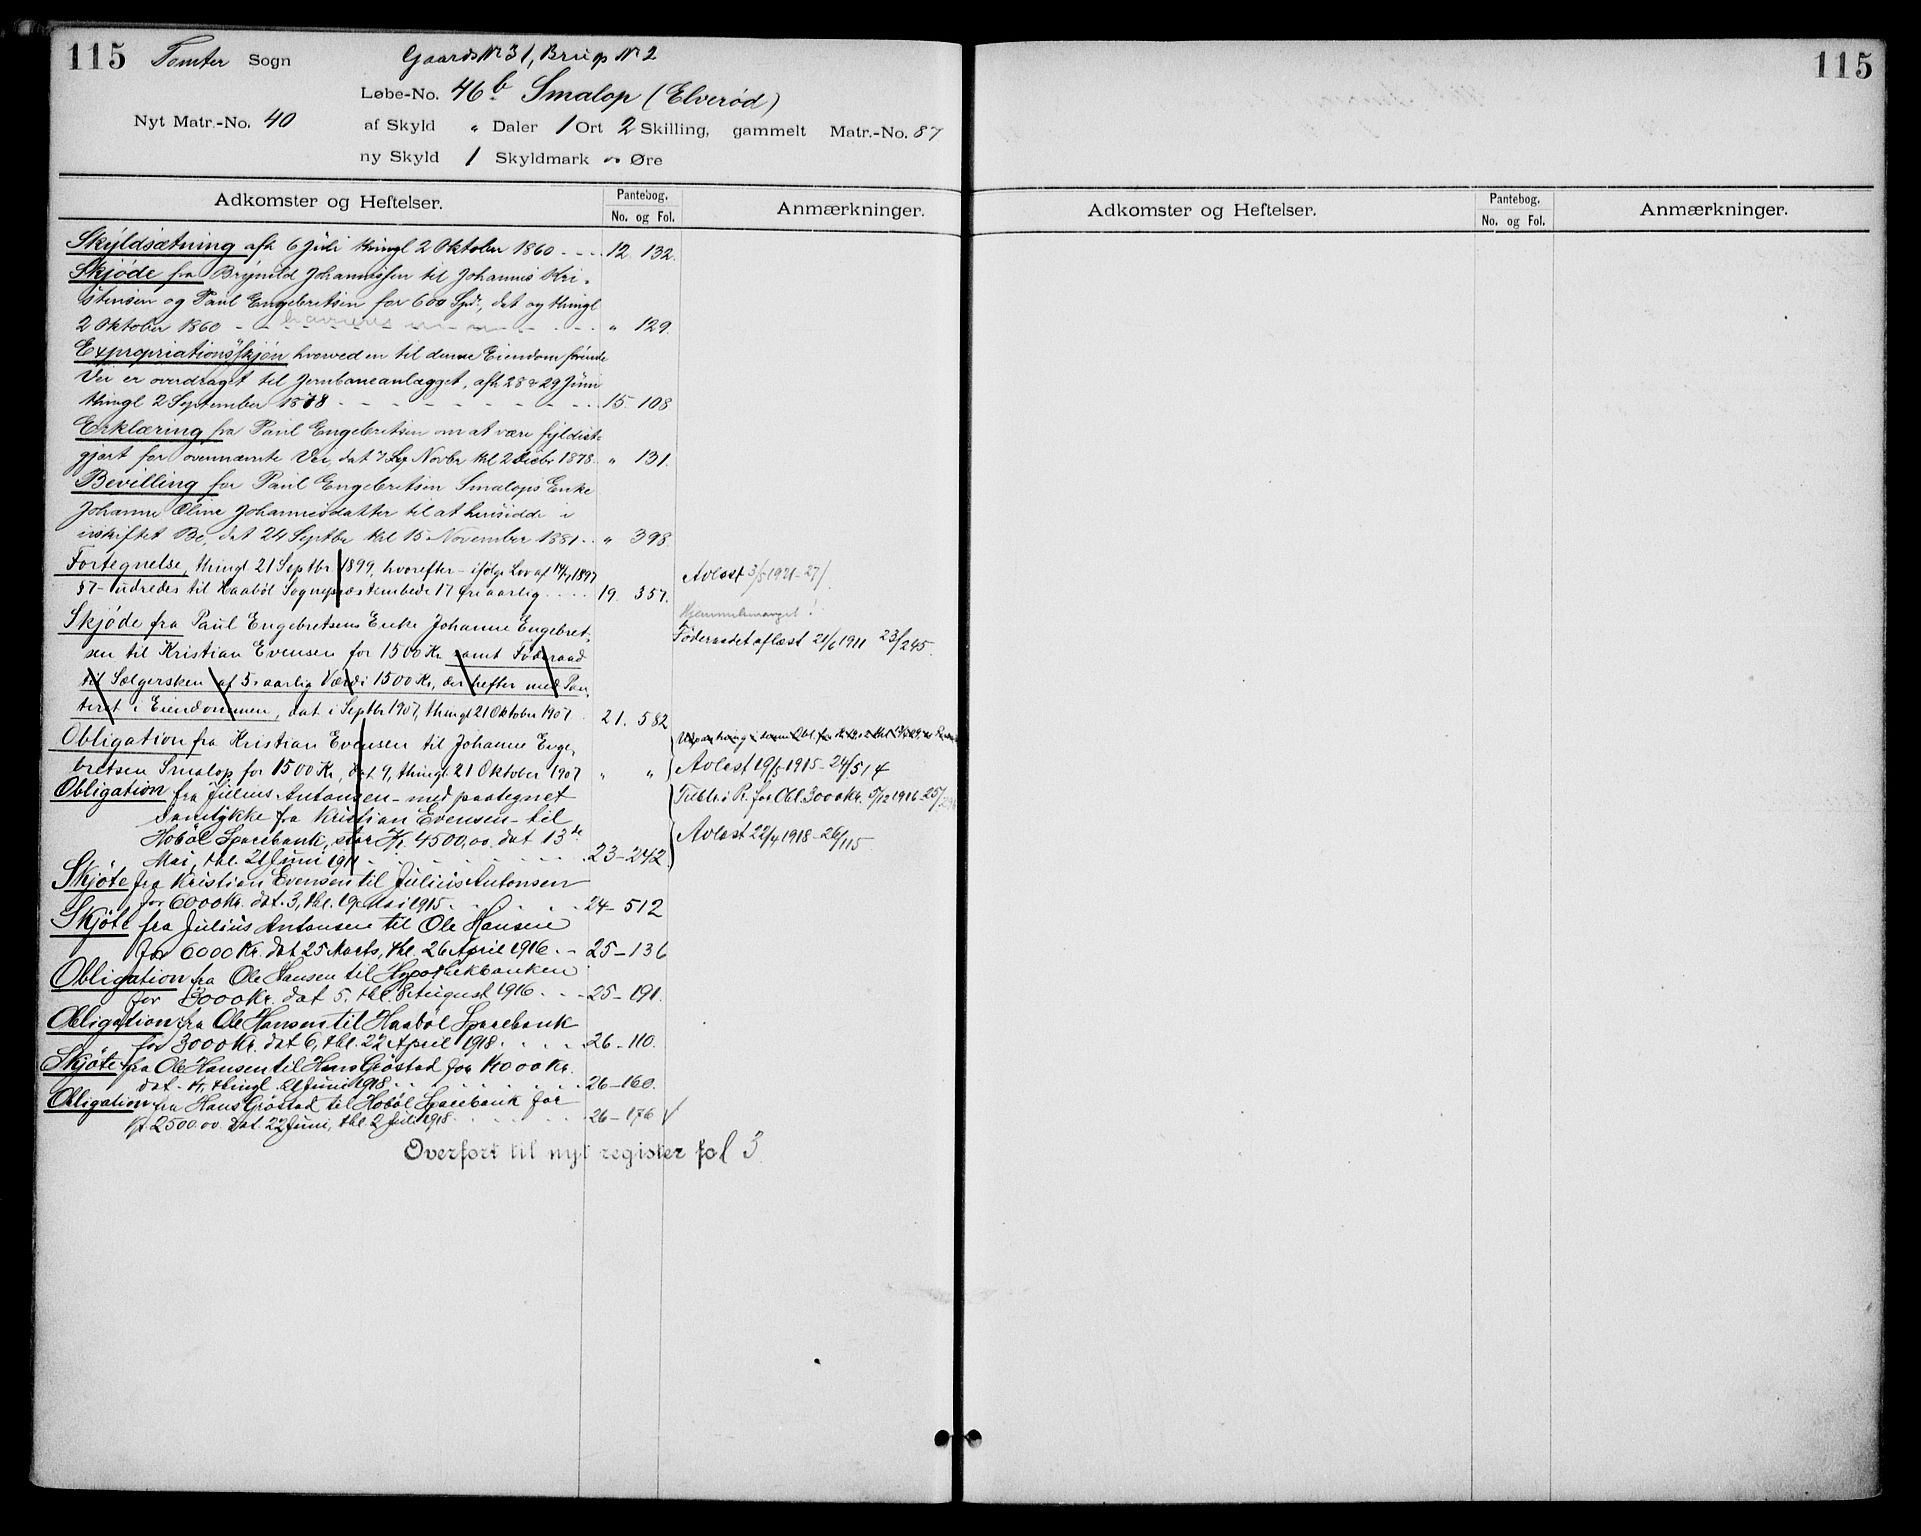 115 Tomter Sogn Gaards Nr 31, Brugs Nr 2
Løbe-No. 46 b. Smalop (Elverød)
Nyt Matr.-No. 40 af Skyld " Daler 1 Ort 2 Skilling, gammelt Matr.-No. 87
ny Skyld 1 Skyldmark Øre
Adkomster og Heftelser. Pantebog. No. og Fol. Anmærkninger.
Skyldsætning afh 6 Juli thingl 2 Oktober 1860 - - - 12. 132.
Skjøde fra Brynild Johannesen til Johannes Kri-
stensen og Paul Engebretsen for 600 Spd., dat og thingl
2 Oktober 1860 - - " 129.
Expropriationsskjøn hvorved en til denne Eiendom førende
Vei er overdraget til Jernbaneanlægget, afh 28 & 29 Juni
thingl 2 September 1878 - - - 15. 108
Erklæring fra Paul Engebretsen om at være fyldist-
gjort for ovennævnte Vei, dat 7 Novbr thl 2 Decbr 1878. " 131.
Bevilling for Paul Engebretsen Smalops Enke
Johanne Oline Johannesdatter til at hensidde i
uskiftet Bo, dat 24 Septbr thl 15 November 1881. . " 398.
Fortegnelse, thingl 21 Septbr 1899, hvorefter - ifølge Lov af 14/7 1897
§7 - udredes til Haabøl Sognepræstembede 17 Øre aarlig . . . . 19. 357.
Avløst 3/5 1921 - 27/
Skjøde fra Paul Engebretsens Enke Johanne Engebret-
sen til Kristian Evensen for 1500 Kr samt Føderaad
til Sælgersken af 5 aarlig Værdi 1500 Kr, der hefter med Pan-
teret i Eiendommen, dat i Septbr 1907, thingl 21 Oktober 1907. 21. 582
Hjemmelsmanget!
Føderaadet aflæst 21/6 1911 23/245.
Obligation fra Kristian Evensen til Johanne Enge-
bretsen Smalop for 1500 Kr, dat 9, thingl 21 Oktober 1907 " "
Avlæst 19/5 1915 - 24/514
Obligation fra Julius Antonsen - med paategnet
Samtykke fra Kristian Evensen - til
Hobøl Sparebank, stor Kr. 4500,00. dat 13de
Mai, thl. 21 Juni 1911 - - - 23 - 242.
Tilbl. Pr. for Obl. 3000 Kr. 5/12 1916 - 25/
Avlæst 22/4 1918 - 26/115.
Skjøte fra Kristian Evensen til Julius Antonsen
for 6000 Kr. dat. 3, thl. 19 Mai 1915 . . . 24 - 512
Skjøte fra Julius Antonsen til Ole Hansen
for 6000 Kr. dat 25 Marts, thl. 26 April 1916 - - 25 - 136
Obligation fra Ole Hansen til Hypothekbanken
for 3000 Kr. dat 5. thl. 8 August 1916 . . . 25 - 191.
Obligation fra Ole Hansen til Haabøl Sparebank
for 3000 Kr. dat 6, thl. 22 April 1918 . . . 26 - 110.
Skjøte fra Ole Hansen til Hans Grøstad for Kr.
dat. thingl. 21 Juni 1918 . . . 26 - 160.
Obligation fra Hans Grøstad til Hobøl Sparebank for
Kr. 2500.00. dat. 22 Juni, thl. 2 Juli 1918. . . . 26 - 176 √
Overført til nyt register fol 3
115
Adkomster og Heftelser. Pantebog. No. og Fol. Anmærkninger.